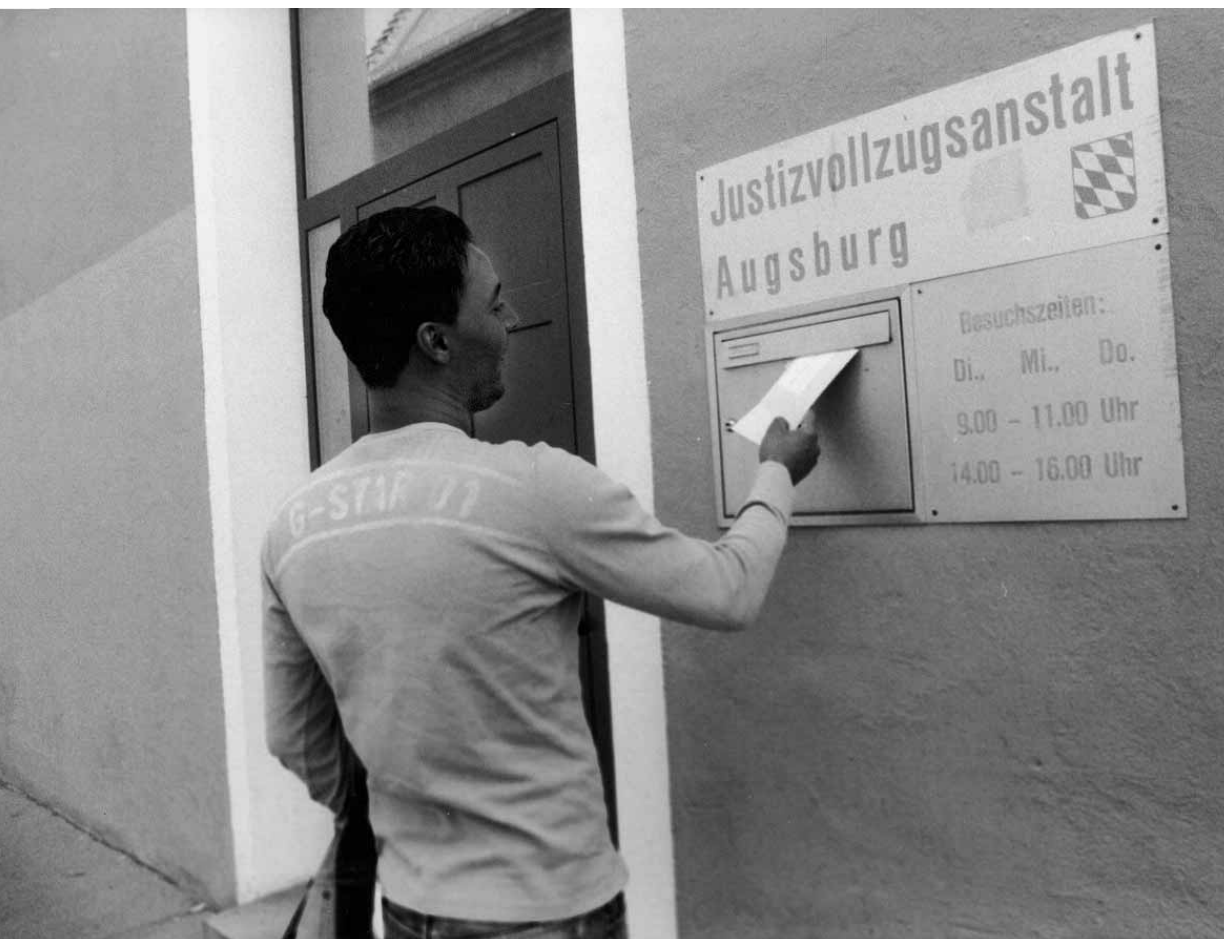 Justizvollzugsanstalt
Augsburg
Besuchszeiten:
Di., Mi., Do.
9.00 – 11.00 Uhr
14.00 – 16.00 Uhr
G-STAR